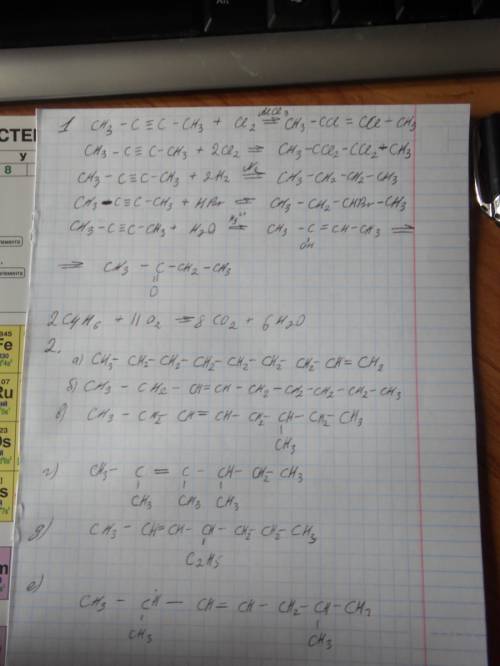 СТЕ
У
8
1 CH3 - C ≡ C - CH3 + Cl2 AlCl3 ⇒ CH3 - CCl = CCl - CH3
CH3 - C ≡ C - CH3 + 2Cl2 ⇒ CH3 - CCl2 - CCl2 - CH3
CH3 - C ≡ C - CH3 + 2H2 ⇒ CH3 - CH2 - CH2 - CH3
CH3 - C ≡ C - CH3 + HBr ⇒ CH3 - CH2 - CHBr - CH3
CH3 - C ≡ C - CH3 + H2O ⇒ CH3 - C = CH - CH3 ⇒
OH
⇒ CH3 - C - CH2 - CH3
O
2C4H6 + 11O2 ⇒ 8CO2 + 6H2O
2.
а) CH3 - CH2 - CH2 - CH2 - CH2 - CH2 - CH2 - CH = CH2
б) CH3 - CH2 - CH = CH - CH2 - CH2 - CH2 - CH2 - CH3
в) CH3 - CH2 - CH = CH - CH2 - CH - CH2 - CH3
CH3
г) CH3 - C = C - CH - CH2 - CH3
CH3 CH3 CH3
д) CH3 - CH = CH - CH - CH2 - CH2 - CH3
C2H5
е)
CH3 - CH - CH = CH - CH2 - CH - CH3
CH3 CH3
Fe
Ru
Os
s